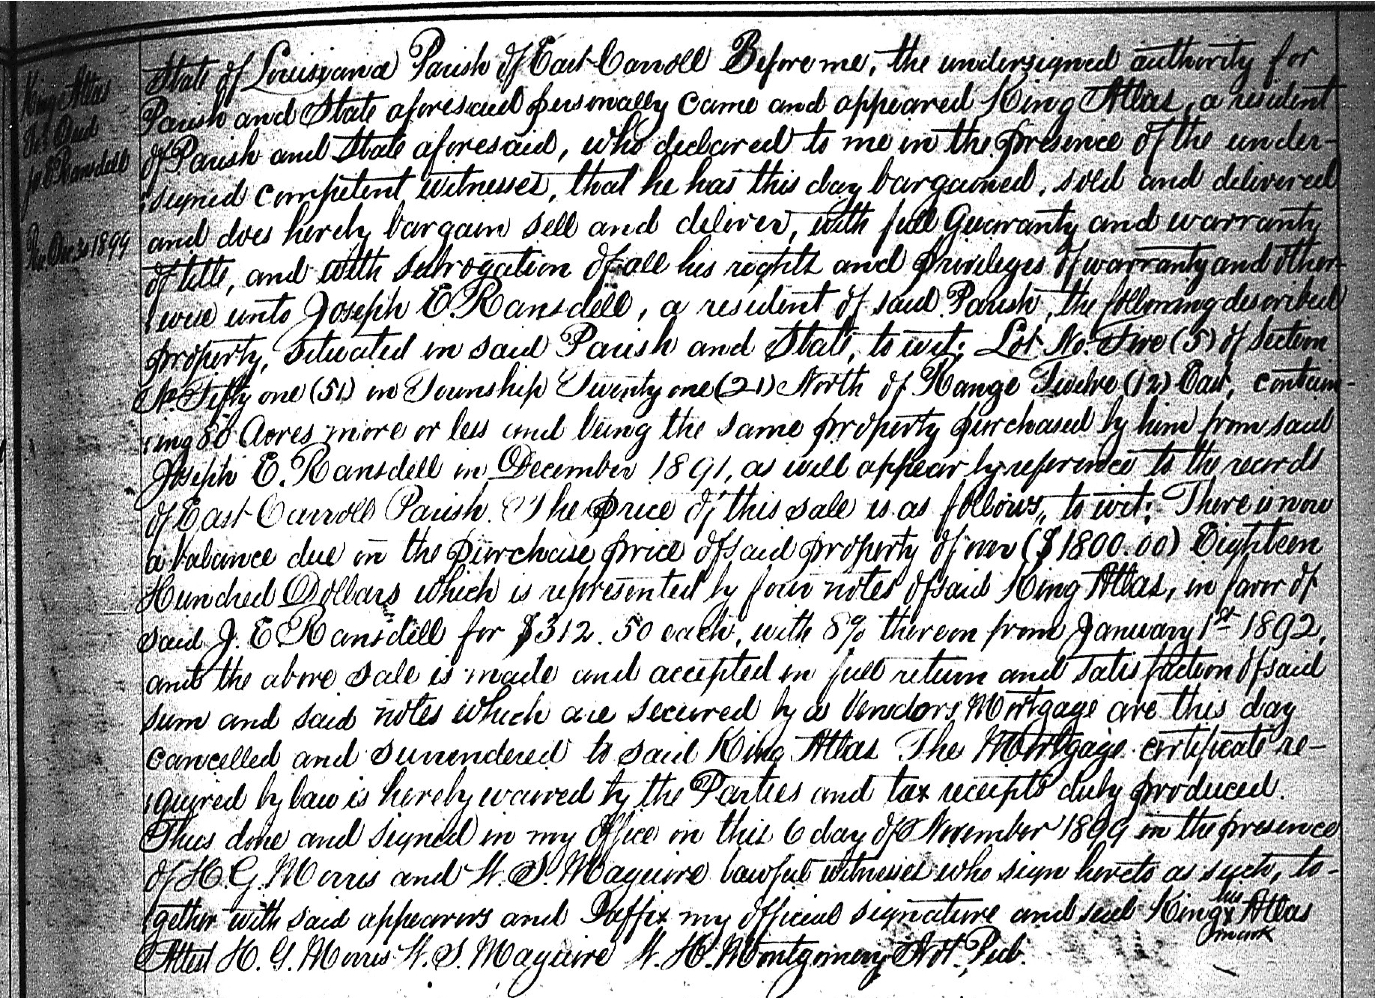 King Atlas
To: Deed
Jos. E. Ransdell
State of Louisiana Parish of East Carroll Before me, the undersigned authority for
Parish and State aforesaid personally came and appeared King Atlas, a resident
of Parish and State aforesaid, who declared to me in the presence of the under-
signed competent witnesses, that he has this day bargained, sold and delivered
and does hereby bargain sell and deliver, with full Guaranty and warranty
of title, and with subrogation of all his rights and privileges of warranty and other-
wise unto Joseph E. Ransdell, a resident of said Parish, the following described
property, situated in said Parish and State, to wit: Lot No. Five (5) of Section
No. Fifty one (51) in Township Twenty one (21) North of Range Twelve (12) East, contain-
ing 80 Acres more or less and being the same property purchased by him from said
Joseph E. Ransdell in December 1891, as will appear by reference to the records
of East Carroll Parish. The price of this sale is as follows, to wit: There is now
a balance due on the purchase price of said property of over ($1800.00) Eighteen
Hundred Dollars which is represented by four notes of said King Atlas, in favor of
said J. E. Ransdell for $312.50 each, with 8% thereon from January 1st 1892,
and the above sale is made and accepted in full return and satisfaction of said
sum and said notes which are secured by a Vendors Mortgage are this day
cancelled and surrendered to said King Atlas The Mortgage certificate re-
quired by law is hereby waived by the Parties and tax receipts duly produced.
Thus done and signed in my office on this 6 day of November 1899 in the presence
of H. G. Morris and W. S. Maguire lawful witnesses who sign hereto as such, to-
gether with said appearers and I affix my official signature and seal King his x mark Atlas
Attest H. G. Morris W. S. Maguire W. H. Montgomery Not. Pub.